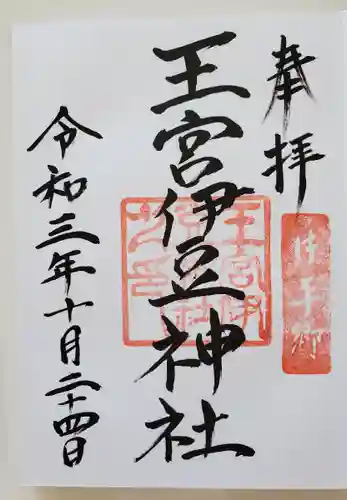 奉拝
王宮伊豆神社
令和三年十月二十四日